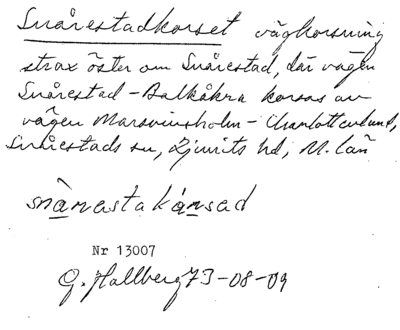 Snårestadkorset vägkorsning
strax öster om Snårestad, där vägen
Snårestad - Balkåkra korsas av
vägen Marsvinsholm - Charlottenlund,
Snårestads sn, Ljunits hd, M. län
snàrestakånsad
Nr 13007
G. Hallberg 73-08-09